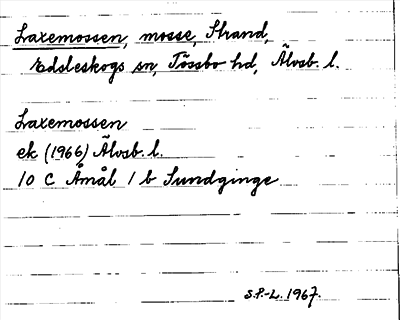 Laxemossen, mosse, Strand,
Edsleskogs sn, Tössbo hd, Älvsb. l.
Laxemossen
ek (1966) Älvsb. l.
10 C Åmål 1 b Sundginge
S.P.-L. 1967.